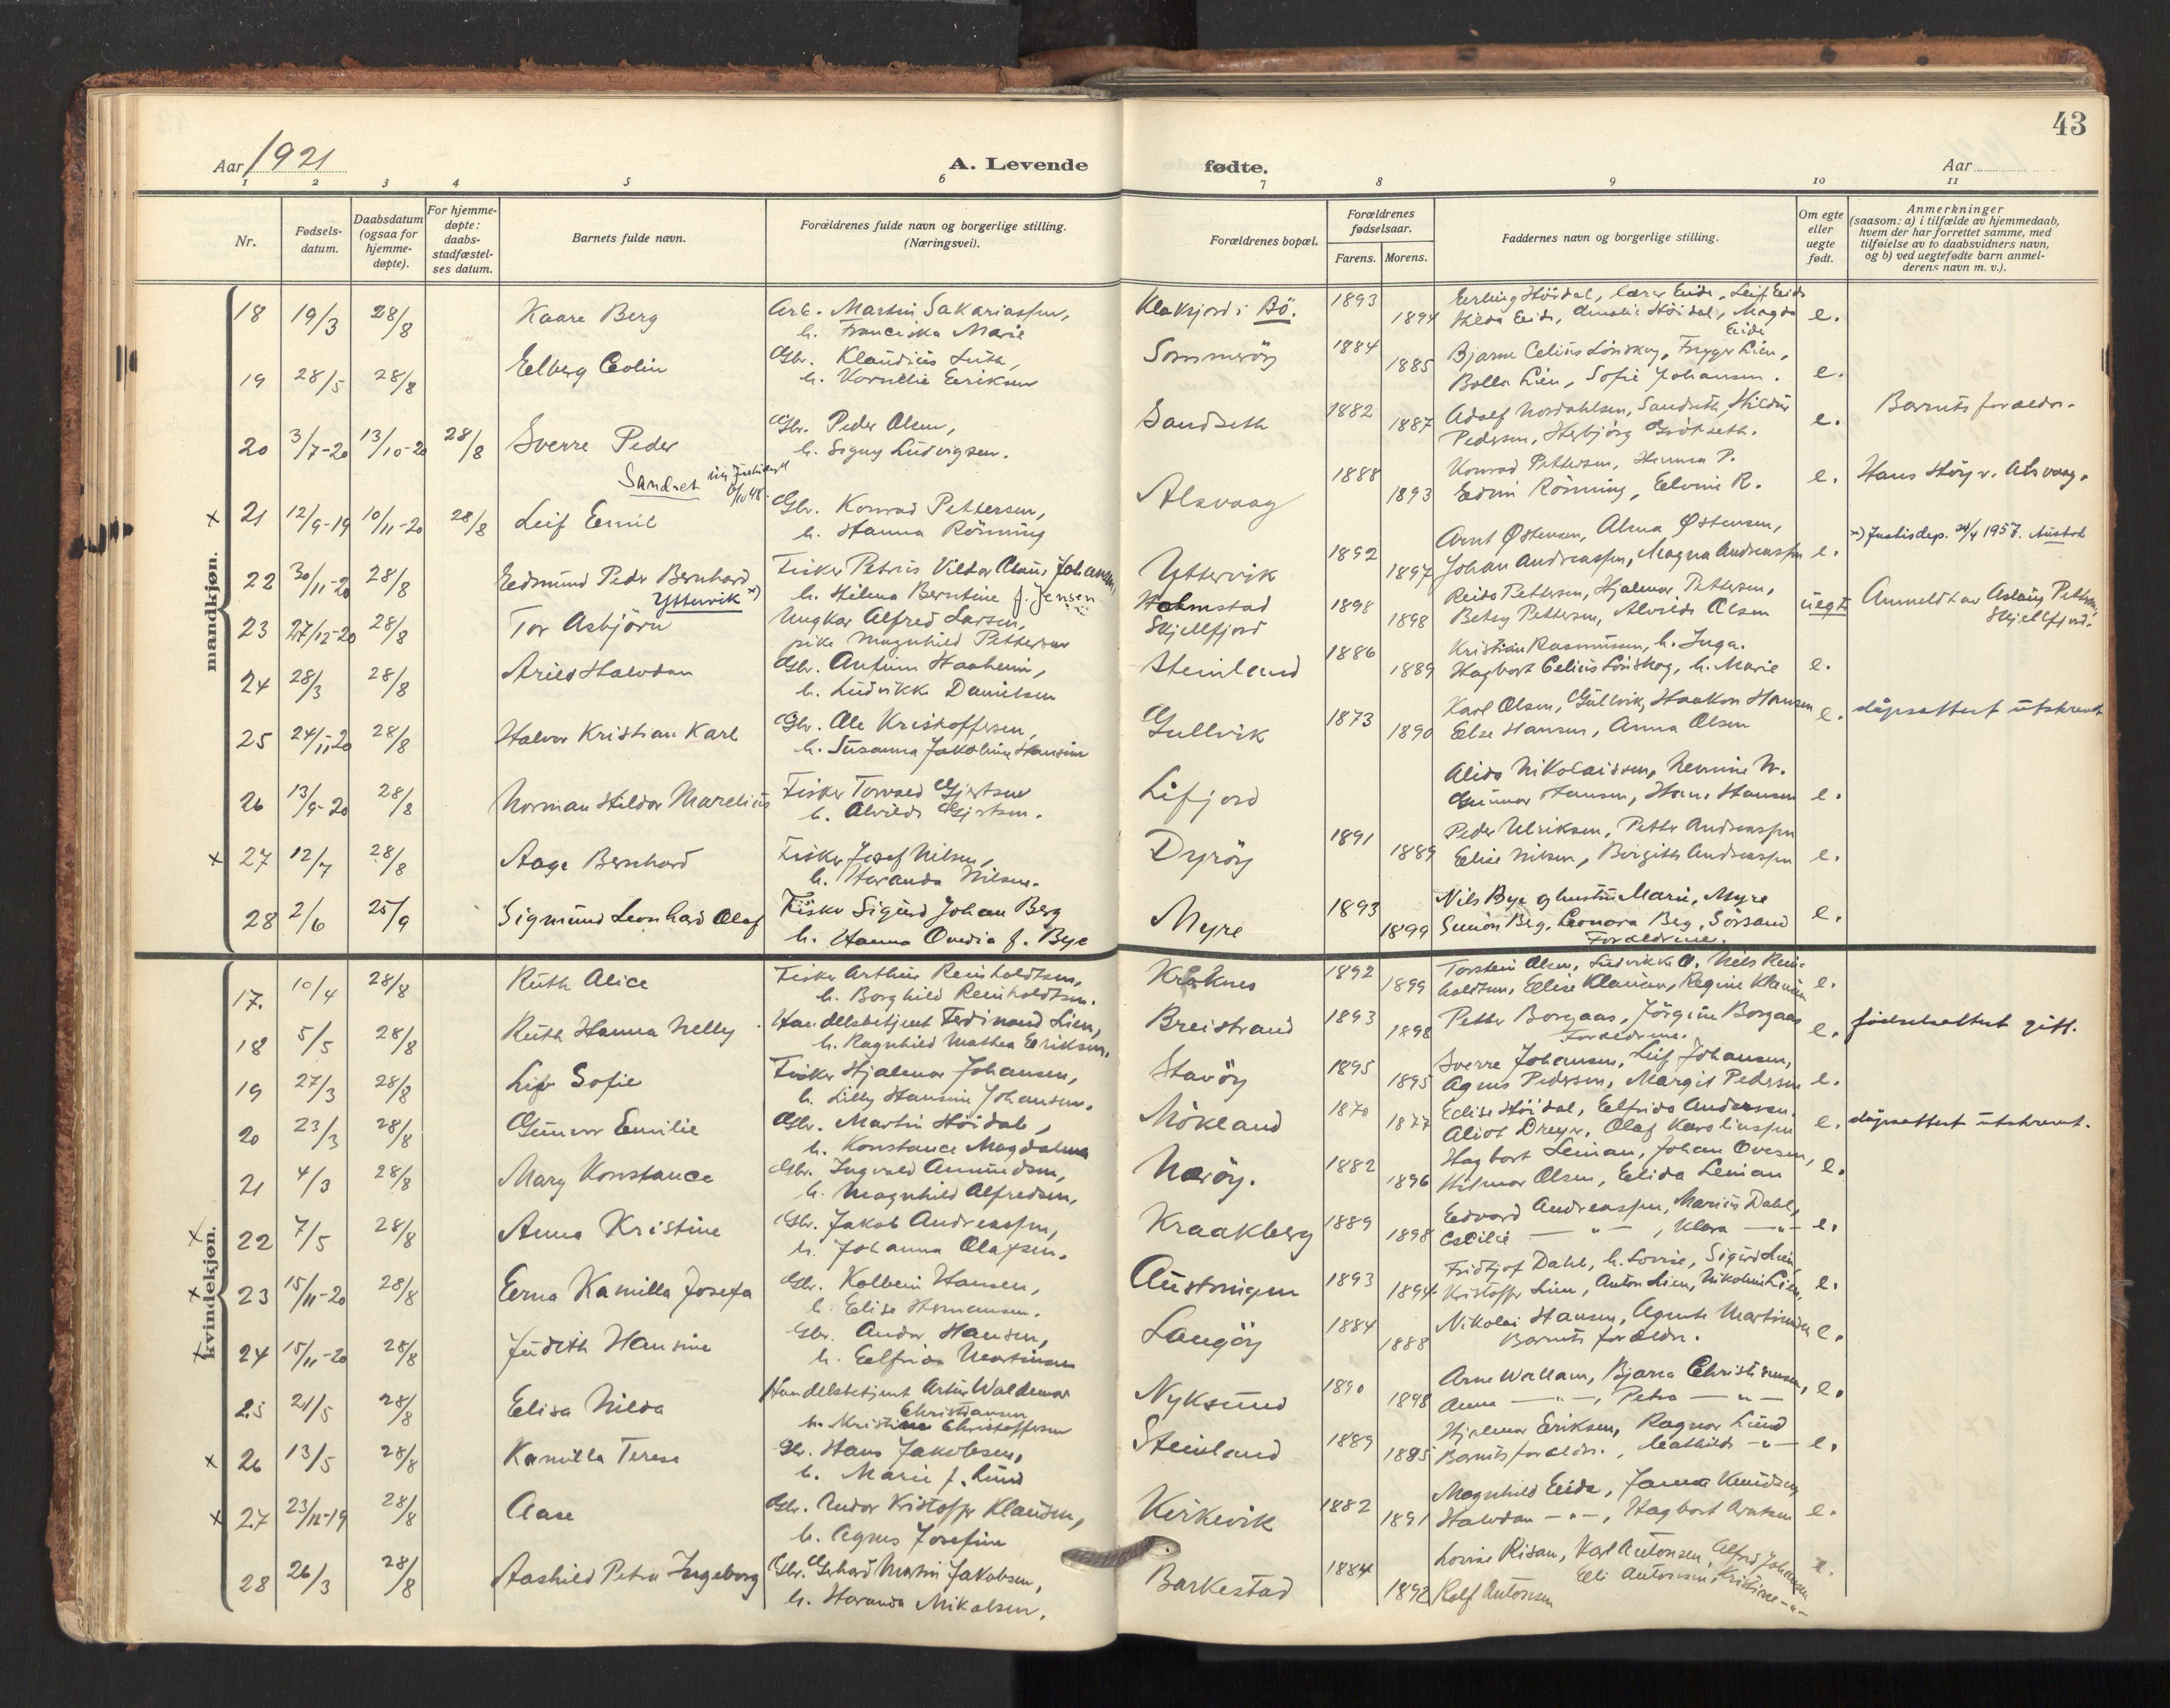 43
Aar 1921
A. Levende fødte.
Aar
1 2 3 4 5 6 7 8 9 10 11
Nr.
Fødsels-
datum.
Daabsdatum
(ogsaa for
hjemme-
døpte).
For hjemme-
døpte:
daabs-
stadfæstel-
ses datum.
Barnets fulde navn.
Forældrenes fulde navn og borgerlige stilling.
(Næringsvei).
Forældrenes bopæl.
Forældrenes
fødselsaar.
Farens. Morens.
Faddernes navn og borgerlige stilling.
Om egte
eller
uegte
født.
Anmerkninger
(saasom: a) i tilfælde av hjemmedaab,
hvem der har forrettet samme, med
tilføielse av to daabsvidners navn,
og b) ved uegtefødte barn anmel-
derens navn m. v.).
mandkjøn.
18 19/3 28/8 Kaare Berg Arb. Martin Sakariassen, Klakfjord i Bö. 1893 Erling Höidal, lærer Eide, Leif Eide
h. Franciska Marie 1894 Hilda Eide, Amalie Höidal, Magda e.
Eide
19 28/5 28/8 Elberg Colin Gbr. Klaudius Luth, Sommeröy 1884 Bjarne Celius Lövskog, Trygve Lien,
h. Kornelie Eriksen 1885 Bolla Lien, Sofie Johansen. e.
20 3/7-20 13/10-20 28/8 Sverre Peder Gbr. Peder Olsen, Sandseth 1882 Adolf Nordahlsen, Sandseth, Hildur e. Barnets forældre.
Sandset h. Signy Ludvigsen. 1887 Pedersen, Herbjörg
x 21 12/9-19 10/11-20 28/8 Leif Emil Gbr. Konrad Pettersen, Alsvaag 1888 Konrad Pettersen, Hanna P. e. Hans Höyv. Alsvaag.
h. Hanna Rönning 1893 Edvin Rönning, Elvine R.
22 30/11-20 28/8 Edmund Peder Bernhard Fisker Petrus Vildor Claus Johansen, Yttervik 1892 Arnt Østensen, Alma Østensen, e. x) Justisdep. 24/4 1957. Austad
Yttervik x) h. Hilma Berntine f. Jensen 1897 Johan Andreassen, Magna Andreassen
23 27/12-20 28/8 Tor Asbjörn Ungkar Alfred Larsen, Holmstad 1898 Reido Pettersen, Hjalmar Pettersen, uegte Anmeldt av Aslaug Pettersen,
pike Magnhild Pettersen Skjellfjord 1898 Betsy Pettersen, Alvilde Olsen Skjellfjord.
24 28/3 28/8 Arild Halvdan Gbr. Anfinn Haaheim, Steinland 1886 Kristian Rasmussen, h. Inga.
h. Ludvikke Danielsen 1889 Hagbart Celius Lövskog, h. Marie e.
25 24/11-20 28/8 Halvor Kristian Karl Gbr. Ole Kristoffersen, Gullvik 1873 Karl Olsen, Gullvik, Haakon Hansen e. dåpsattest utskrevet
h. Susanna Jakobine Hansine 1890 Else Hansen, Anna Olsen
26 13/9-20 28/8 Norman Hildor Marelius Fisker Torvald Gjertsen Lifjord Alida Nikolaisen, N.
h. Alvilde Gjertsen. Gunnar Hansen, Hans Hansen e.
x 27 12/7 28/8 Aage Bernhard Fisker Josef Nilsen, Dyröy 1891 Peder Ulriksen, Petter Andreassen
h. Haranda Nilsen. 1889 Elise Nilsen, Birgitte Andreassen e.
28 2/6 25/9 Sigmund Leonhard Olaf Fisker Sigurd Johan Berg Myre 1893 Nils Bye og hustru Marie, Myre
h. Hanna Ovedia f. Bye 1899 Simon Berg, Leonora Berg, Sörsand e.
Forældrene.
kvindekjøn.
17. 10/4 28/8 Ruth Alice Fisker Arthur Reinholdtsen, Kraknes 1892 Torstein Olsen, Ludvikke O. Nils Rein-
h. Borghild Reinholdtsen. 1899 holdtsen, Elise Klausen, Regine Klausen e.
18 5/5 28/8 Ruth Hanna Nelly Handelsbetjent Ferdinand Lien, Breistrand 1893 Petter Borgaas, Jörgine Borgaas e. fødselsattest gitt.
h. Ragnhild Mathea Eriksen. 1898 Forældrene.
19 27/3 28/8 Liv Sofie Fisker Hjalmar Johansen, Stavöy 1895 Sverre Johansen, Leif Johansen,
h. Lilly Hansine Johansen. 1895 Agnes Pedersen, Margit Pedersen e.
20 23/3 28/8 Gunvor Emilie Gbr. Martin Höidal, Mökland 1870 Edise Höidal, Elfrida Andersen. e. dåpsattest utskrevet.
h. Konstance Magdalena 1877 Aliot Dreyer, Olaf Karoliussen
21 4/3 28/8 Mary Konstance Gbr. Ingvald Amundsen, Naröy. 1882 Hagbart Leinan, Johan Ovesen, e.
h. Magnhild Alfredsen, 1896 Hilmar Olsen, Elida Leinan
x 22 7/5 28/8 Anna Kristine Gbr. Jakob Andreassen, Kraakberg 1889 Edvard Andreassen, Marius Dahl,
h. Johanna Olafsen. 1898 Cecilie — " —, Klara — " — e.
x 23 15/11-20 28/8 Erna Kamilla Josefa Gbr. Kolbein Hansen, Austningen 1893 Fridtjof Dahl, h. Lovise, Sigurd Lien, e.
h. Elise Hermansen. 1894 Kristoffer Lien, Anton Lien, Nikoline Lien,
x 24 15/11-20 28/8 Judith Hansine Gbr. Andor Hansen, Langöy 1884 Nikolai Hansen, Agnete Martinsen e.
h. Elfrida Martinsen 1888 Barnets forældre.
25 21/5 28/8 Elisa Nilda Handelsbetjent Artur Waldemar Nyksund 1890 Arne Wollam, Bjarne Christiansen, e.
Christiansen
h. Kristine Christoffersen 1898 Anna — " —, Petra — " —
x 26 13/5 28/8 Kamilla Terese Gbr. Hans Jakobsen, Steinland 1889 Hjalmar Eriksen, Ragnar Lund
h. Marie f. Lund 1885 Barnets forældre., Mathilde — " — e.
x 27 23/12-19 28/8 Aase Gbr. Andor Kristoffer Klausen, Kirkevik 1882 Magnhild Eide, Janna Knudsen,
h. Agnes Josefine 1891 Halvdan — " —, Hagbart Arntsen e.
28 26/3 28/8 Aashild Petra Ingeborg Gbr. Gerhard Martin Jakobsen, Barkestad 1884 Lovise Risan, Karl Antonsen, Alfred Johansen e.
h. Haranda Mikalsen. 1892 Rolf Antonsen Elli Antonsen, Kristine — " —